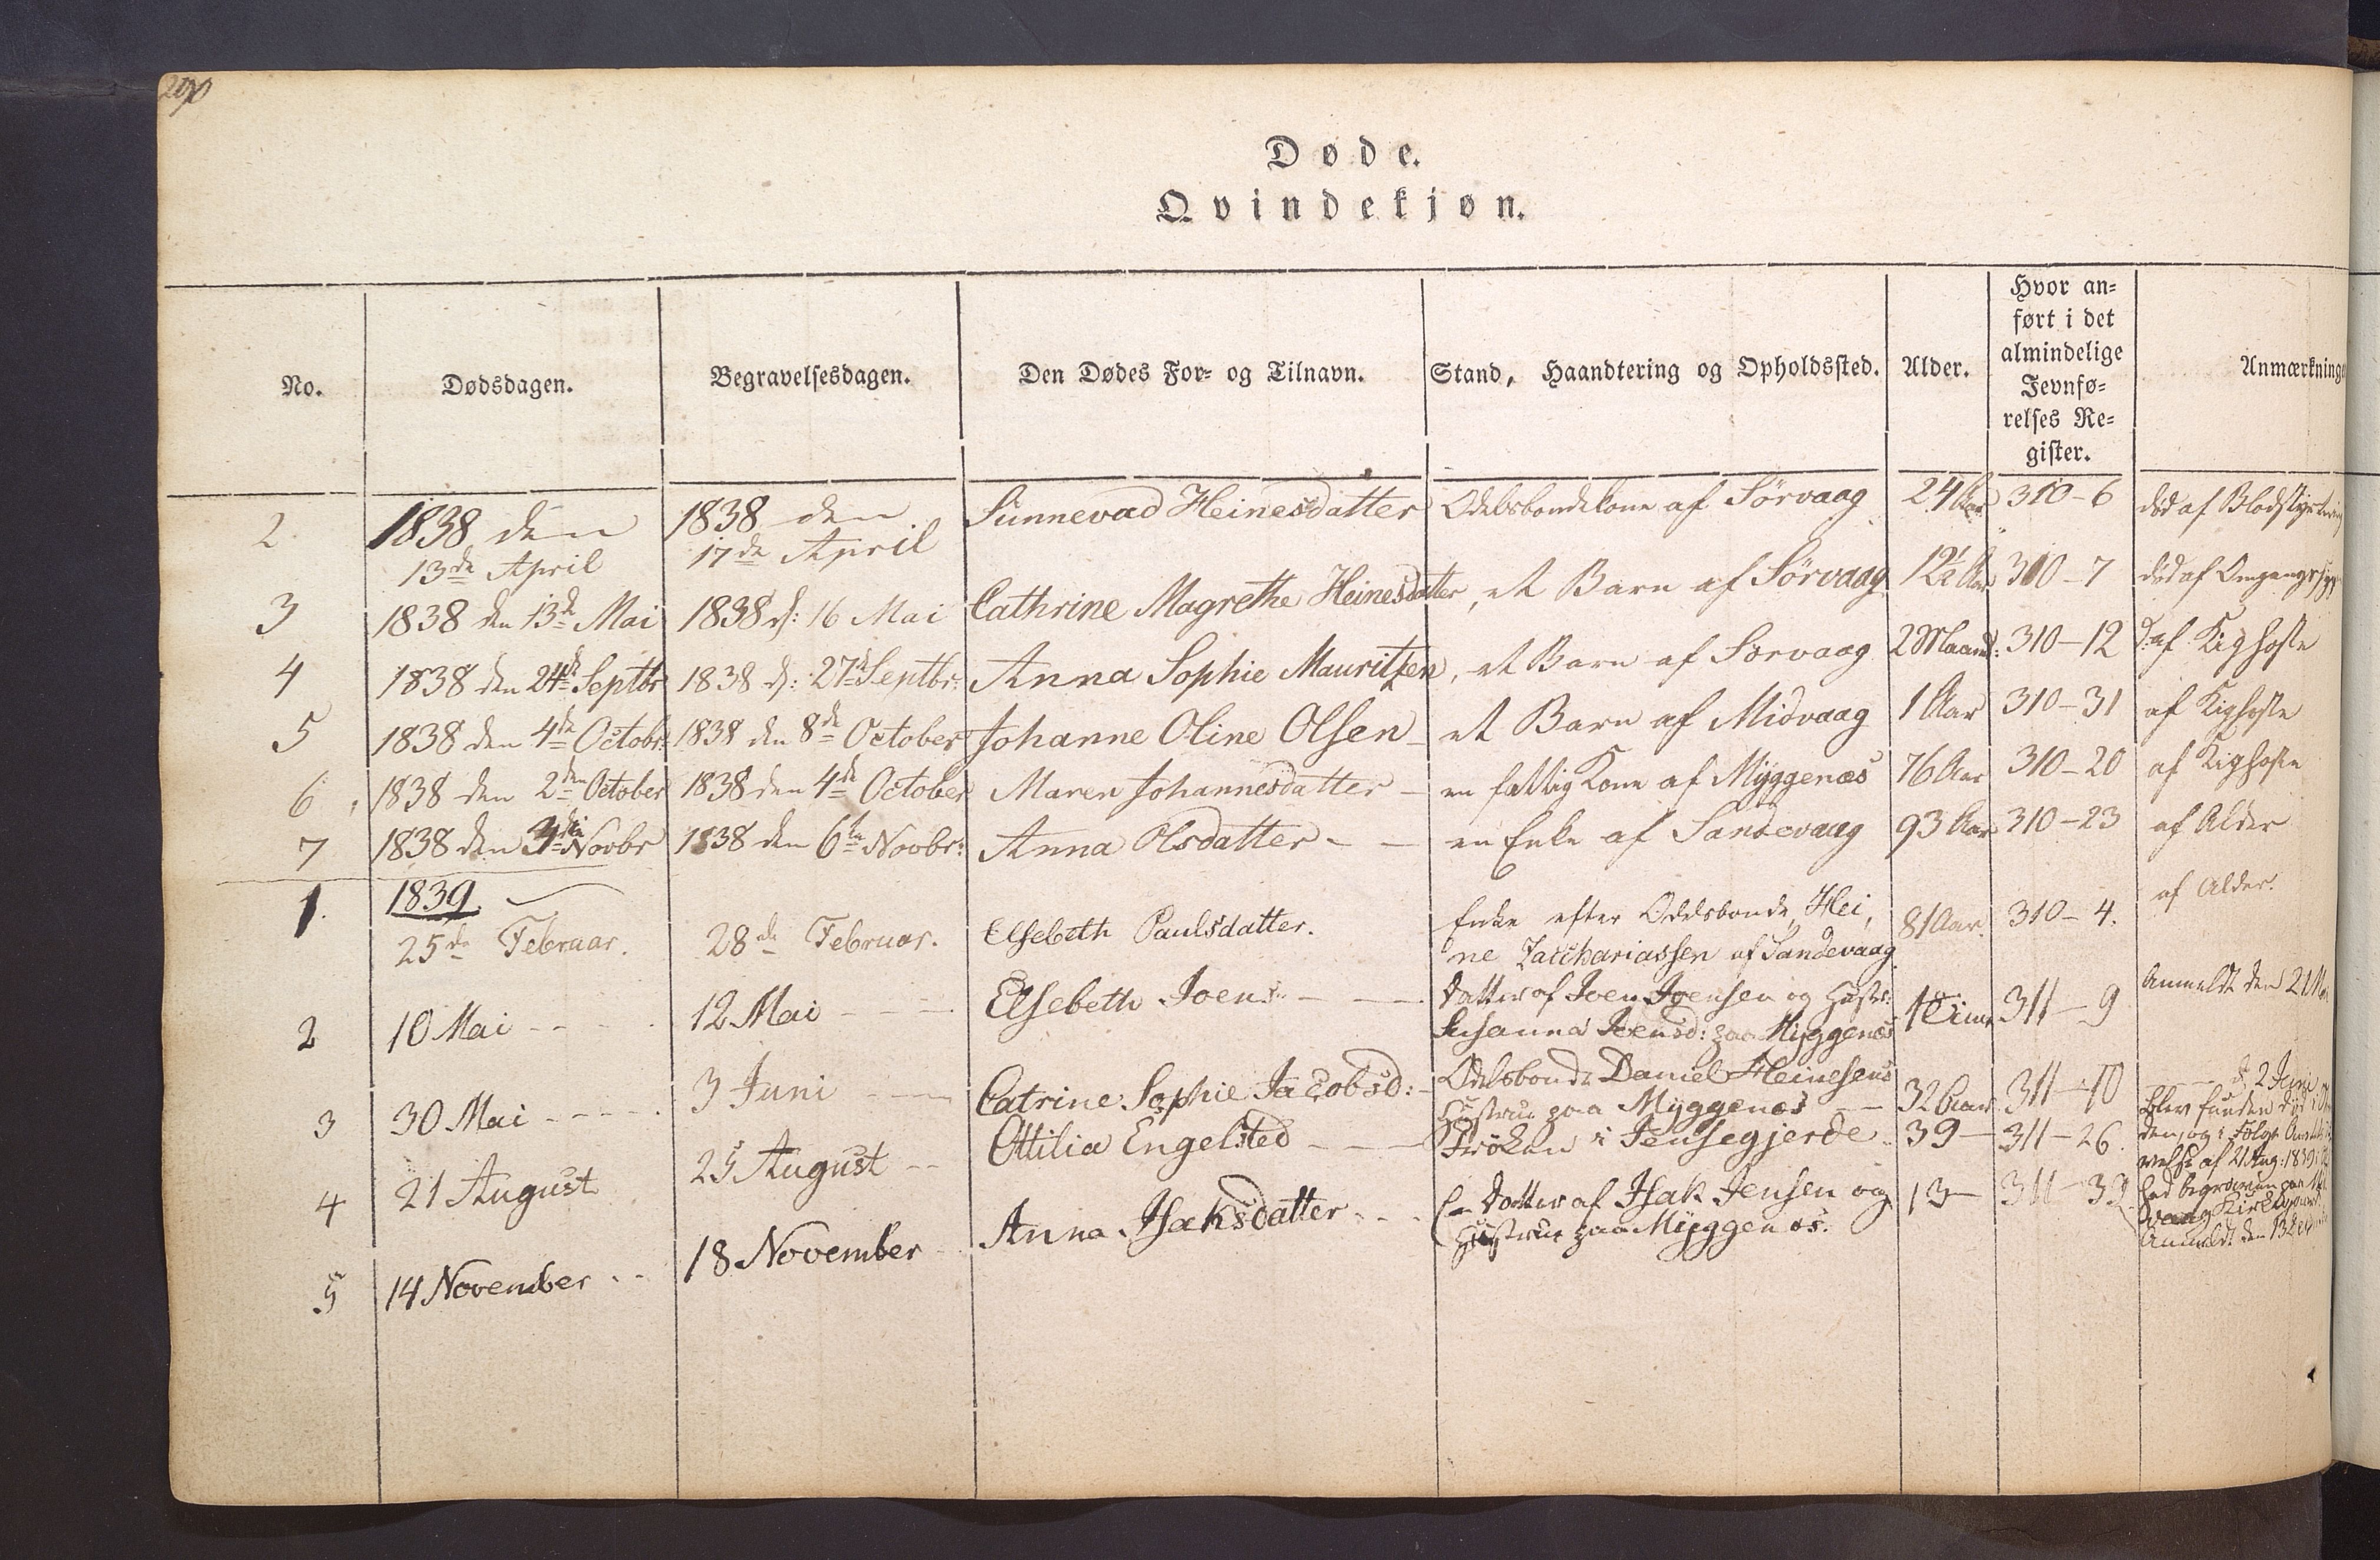 290
Døde.
Qvindekjøn.
No. Dødsdagen. Begravelsesdagen. Den Dødes For- og Tilnavn. Stand, Haandtering og Opholdssted. Alder. Hvor an-
ført i det
almindelige
Jevnfø-
relses Re-
gister. Anmærkninge
2 1838 den 1838 den Sunnevad Heinesdatter Odelsbondekone af Sörvaag 24 Aar 310-6 död af
13de April 17de April
3 1838 den 13de Mai 1838 d: 16 Mai Cathrine Magrethe Heinesdatter, et Barn af Sörvaag 12½ Aar 310-7 död af
4 1838 den 24de Septbr 1838 d: 27de Septbr: Anna Sophie Mauritzen, et Barn af Sorvaag 2 Maand: 310-12 D: af Kighoste
5 1838 den 4de Octobr: 1838 den 8de October Johanne Oline Olsen - et Barn af Midvaag 1 Aar 310-31 af Kighoste
6 1838 den 2den October 1838 den 4de October Maren Johannesdatter - en fattig Kone af Myggenæs 76 Aar 310-20 af Kighoste
7 1838 den 3die Novbr 1838 den 6te Novbr: Anna Olsdatter - - en Enke af Sandevaag 93 Aar 310-23 af Alder
1. 1839.
25de Februar. 28de Februar. Elsebeth Paulsdatter. Enke efter Odelsbonde Hei, 81 Aar. 310-4. af Alder.
ne Zatchariassen af Sandevaag.
2 10 Mai 12 Mai Elsebeth Joens Datter af Joen Joensen og Hustr: 1 Time 311-9 Anmeldt den 21 Mai
Susanna Joensd: paa Myggenæs
3 30 Mai 3 Juni Catrine Sophie Jacobsd: Odelsbonde Daniel Heinesens 32 Aar 311-10 d. 2 Juni
Hustrue paa Myggenæs
4 21 August 25 August Ottilia Engelsted Fröken i Jensegjerde 39 - 311-26 Blev funden död i
den, og i Fölge
af 21 Aug: 1839
begraven paa
vaag Kirkegaard
5 14 November 18 November Anna Isaksdatter En Datter af Isak Jensen og 13 - 311-33 Anmeldt den 13
Hustrue paa Myggenæs.